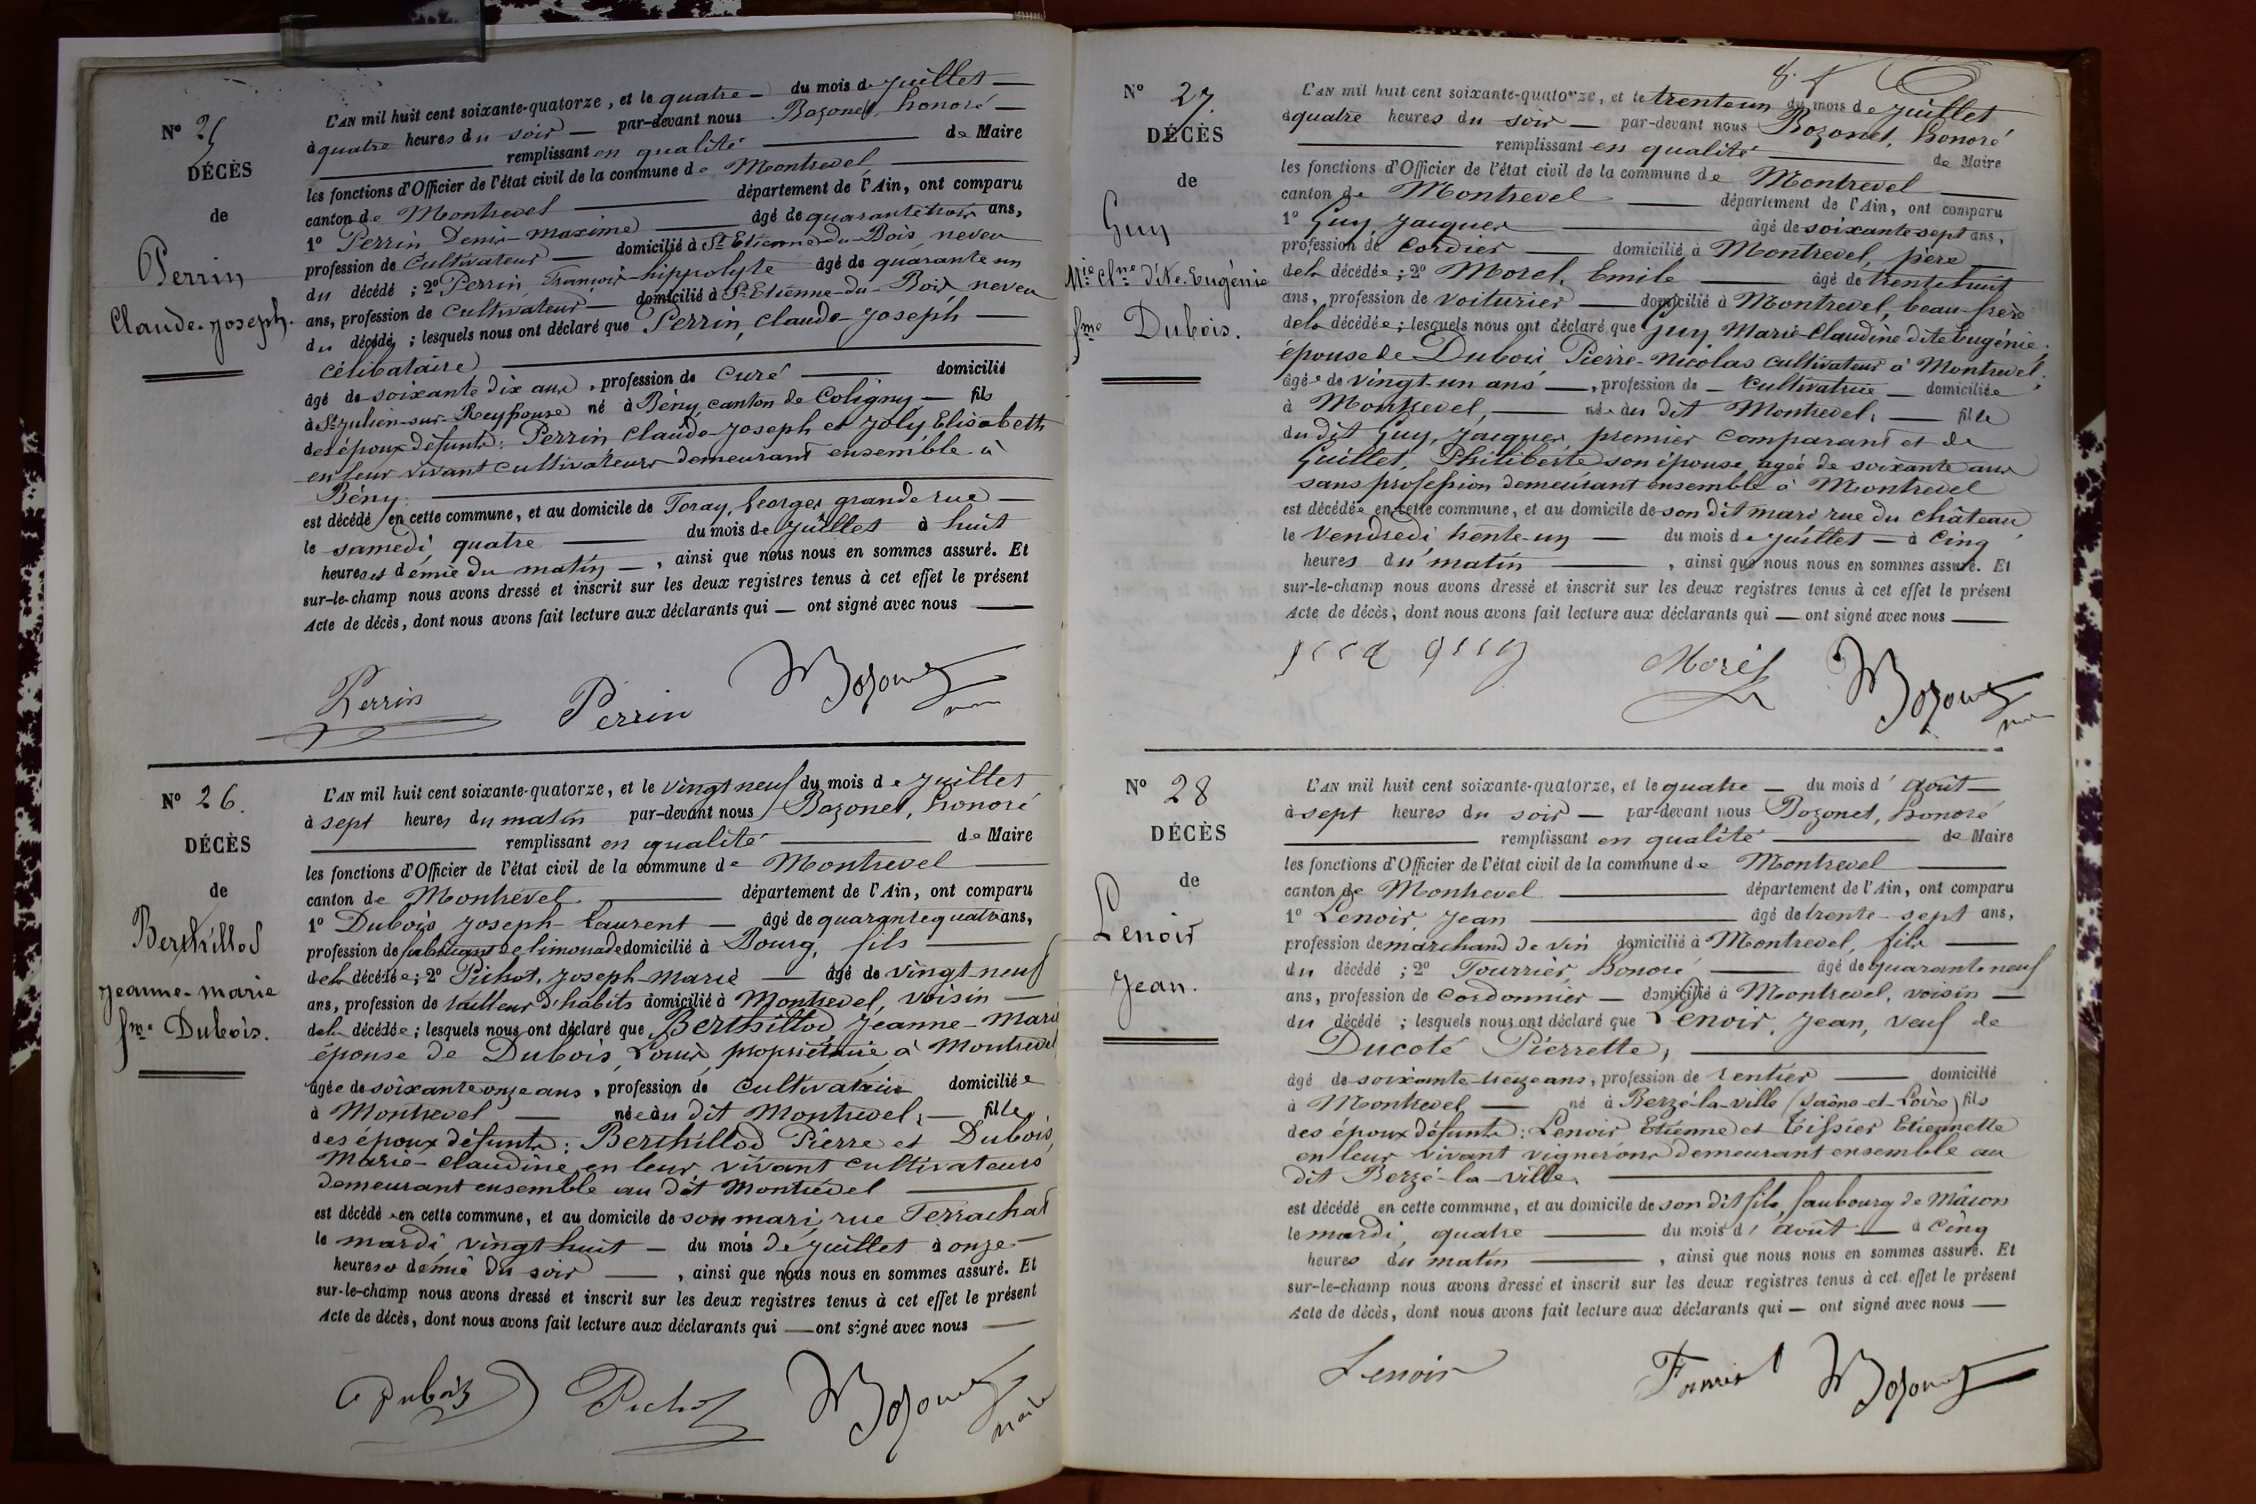 N° 25
DÉCÈS
de
Perrin
Claude-Joseph.
L'AN mil huit cent soixante-quatorze, et le quatre — du mois de Juillet —
à quatre heures du soir — par-devant nous Bozonet, honoré —
remplissant en qualité — de Maire
les fonctions d'Officier de l'état civil de la commune de Montrevel —
canton de Montrevel — département de l'Ain, ont comparu
1° Perrin Denis-Maxime — âgé de quarante trois ans,
profession de Cultivateur — domicilié à St Etienne-du-Bois, neveu
du décédé ; 2° Perrin François-hippolyte âgé de quarante un
ans, profession de Cultivateur — domicilié à St Etienne-du-Bois neveu
du décédé ; lesquels nous ont déclaré que Perrin, Claude-Joseph —
célibataire —
âgé de soixante dix ans, profession de Curé — domicilié
à St Julien-sur-Reyssouze né à Bény, canton de Coligny — fils
des époux défunts : Perrin Claude-Joseph et Joly Elisabeth
en leur vivant cultivateurs demeurant ensemble à
Bény. —
est décédé en cette commune, et au domicile de Toray, Georges grande rue —
le samedi quatre — du mois de Juillet à huit
heures et demie du matin —, ainsi que nous nous en sommes assuré. Et
sur-le-champ nous avons dressé et inscrit sur les deux registres tenus à cet effet le présent
Acte de décès, dont nous avons fait lecture aux déclarants qui — ont signé avec nous —
Perrin Perrin Bozonet
N° 26.
DÉCÈS
de
Berthillod
Jeanne-Marie
fme Dubois.
L'AN mil huit cent soixante-quatorze, et le vingt neuf du mois de Juillet
à sept heures du matin par-devant nous Bozonet, honoré
remplissant en qualité — de Maire
les fonctions d'Officier de l'état civil de la commune de Montrevel —
canton de Montrevel — département de l'Ain, ont comparu
1° Dubois Joseph-Laurent — âgé de quarante quatre ans,
profession de fabricant de limonade domicilié à Bourg, fils —
de la décédée ; 2° Pichot, Joseph-Marie — âgé de vingt-neuf
ans, profession de tailleur d'habits domicilié à Montrevel, voisin —
de la décédée ; lesquels nous ont déclaré que Berthillod, Jeanne-Marie
épouse de Dubois, Louis, propriétaire à Montrevel
âgée de soixante onze ans, profession de Cultivatrice domiciliée
à Montrevel — née au dit Montrevel, — fille
des époux défunts : Berthillod Pierre et Dubois,
Marie-Claudine en leur vivant cultivateurs
demeurant ensemble au dit Montrevel —
est décédée en cette commune, et au domicile de son mari, rue Ferrachat
le mardi, vingt huit — du mois de Juillet à onze —
heures et demie du soir —, ainsi que nous nous en sommes assuré. Et
sur-le-champ nous avons dressé et inscrit sur les deux registres tenus à cet effet le présent
Acte de décès, dont nous avons fait lecture aux déclarants qui — ont signé avec nous —
Dubois Pichot Bozonet maire
N° 27.
DÉCÈS
de
Guy
Mie Clne dite Eugénie
fme Dubois.
L'AN mil huit cent soixante-quatorze, et le trente un du mois de Juillet
à quatre heures du soir — par-devant nous Bozonet, honoré
remplissant en qualité — de Maire
les fonctions d'Officier de l'état civil de la commune de Montrevel —
canton de Montrevel — département de l'Ain, ont comparu
1° Guy, Jacques — âgé de soixante sept ans,
profession de Cordier — domicilié à Montrevel, père —
de la décédée ; 2° Morel, Emile — âgé de trente huit
ans, profession de voiturier — domicilié à Montrevel, beau-frère
de la décédée ; lesquels nous ont déclaré que Guy Marie-Claudine dite Eugénie,
épouse de Dubois, Pierre-Nicolas cultivateur à Montrevel,
âgée de vingt-un ans —, profession de — Cultivatrice — domiciliée
à Montrevel, — née au dit Montrevel, — fille
du dit Guy, Jacques, premier comparant et de
Guillet, Philiberte son épouse, agée de soixante ans
sans profession demeurant ensemble à Montrevel
est décédée en cette commune, et au domicile de son dit mari rue du Château,
le Vendredi trente-un — du mois de Juillet — à Cinq
heures du matin —, ainsi que nous nous en sommes assuré. Et
sur-le-champ nous avons dressé et inscrit sur les deux registres tenus à cet effet le présent
Acte de décès, dont nous avons fait lecture aux déclarants qui — ont signé avec nous —
Morel Bozonet
N° 28
DÉCÈS
de
Lenoir
Jean.
L'AN mil huit cent soixante-quatorze, et le quatre — du mois d'Août —
à sept heures du soir — par-devant nous Bozonet, honoré
remplissant en qualité — de Maire
les fonctions d'Officier de l'état civil de la commune de Montrevel —
canton de Montrevel — département de l'Ain, ont comparu
1° Lenoir, Jean — âgé de trente-sept ans,
profession de marchand de vin domicilié à Montrevel, fils —
du décédé ; 2° Fourrier, honoré — âgé de quarante neuf
ans, profession de Cordonnier — domicilié à Montrevel, voisin —
du décédé ; lesquels nous ont déclaré que Lenoir, Jean, veuf de
Ducoté Pierrette, —
âgé de soixante-treize ans, profession de rentier — domicilié
à Montrevel — né à Berzé-la-ville (Saône-et-Loire) fils
des époux défunts : Lenoir Etienne et Tissier Etiennette
en leur vivant vignerons demeurant ensemble au
dit Berzé-la-ville. —
est décédé en cette commune, et au domicile de son dit fils, faubourg de Mâcon
le mardi, quatre — du mois d'Août — à Cinq
heures du matin —, ainsi que nous nous en sommes assuré. Et
sur-le-champ nous avons dressé et inscrit sur les deux registres tenus à cet effet le présent
Acte de décès, dont nous avons fait lecture aux déclarants qui — ont signé avec nous —
Lenoir Bozonet